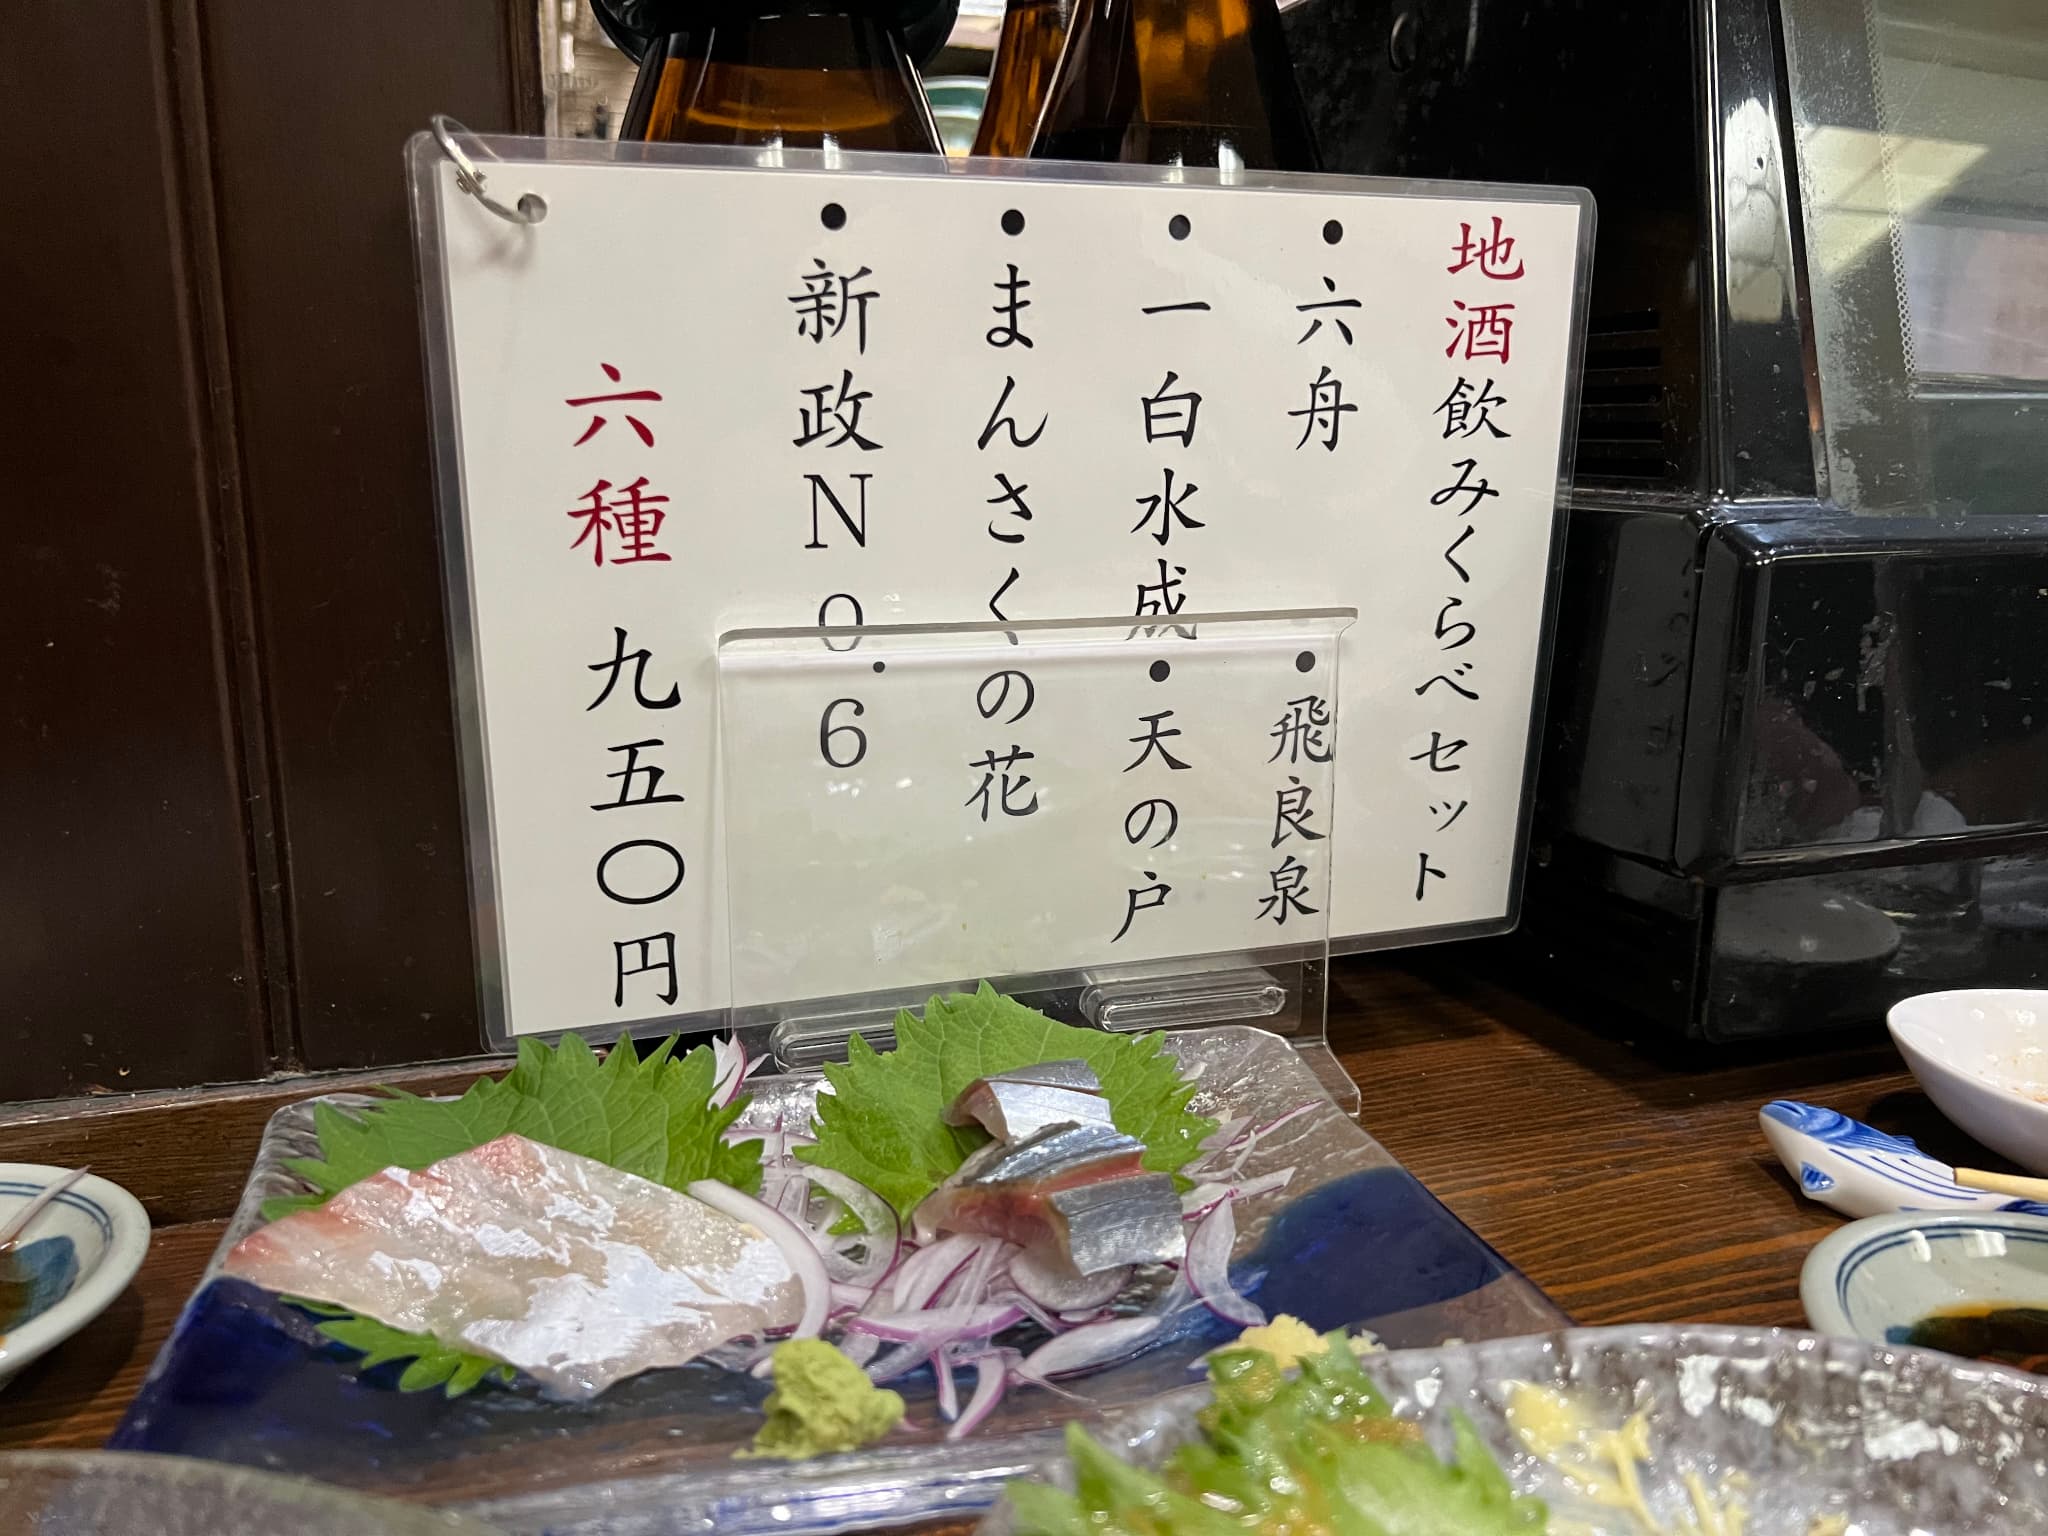 地酒飲みくらべセット
・六舟 ・飛良泉
・一白水成 ・天の戸
・まんさくの花
・新政No.6
六種 九五〇円